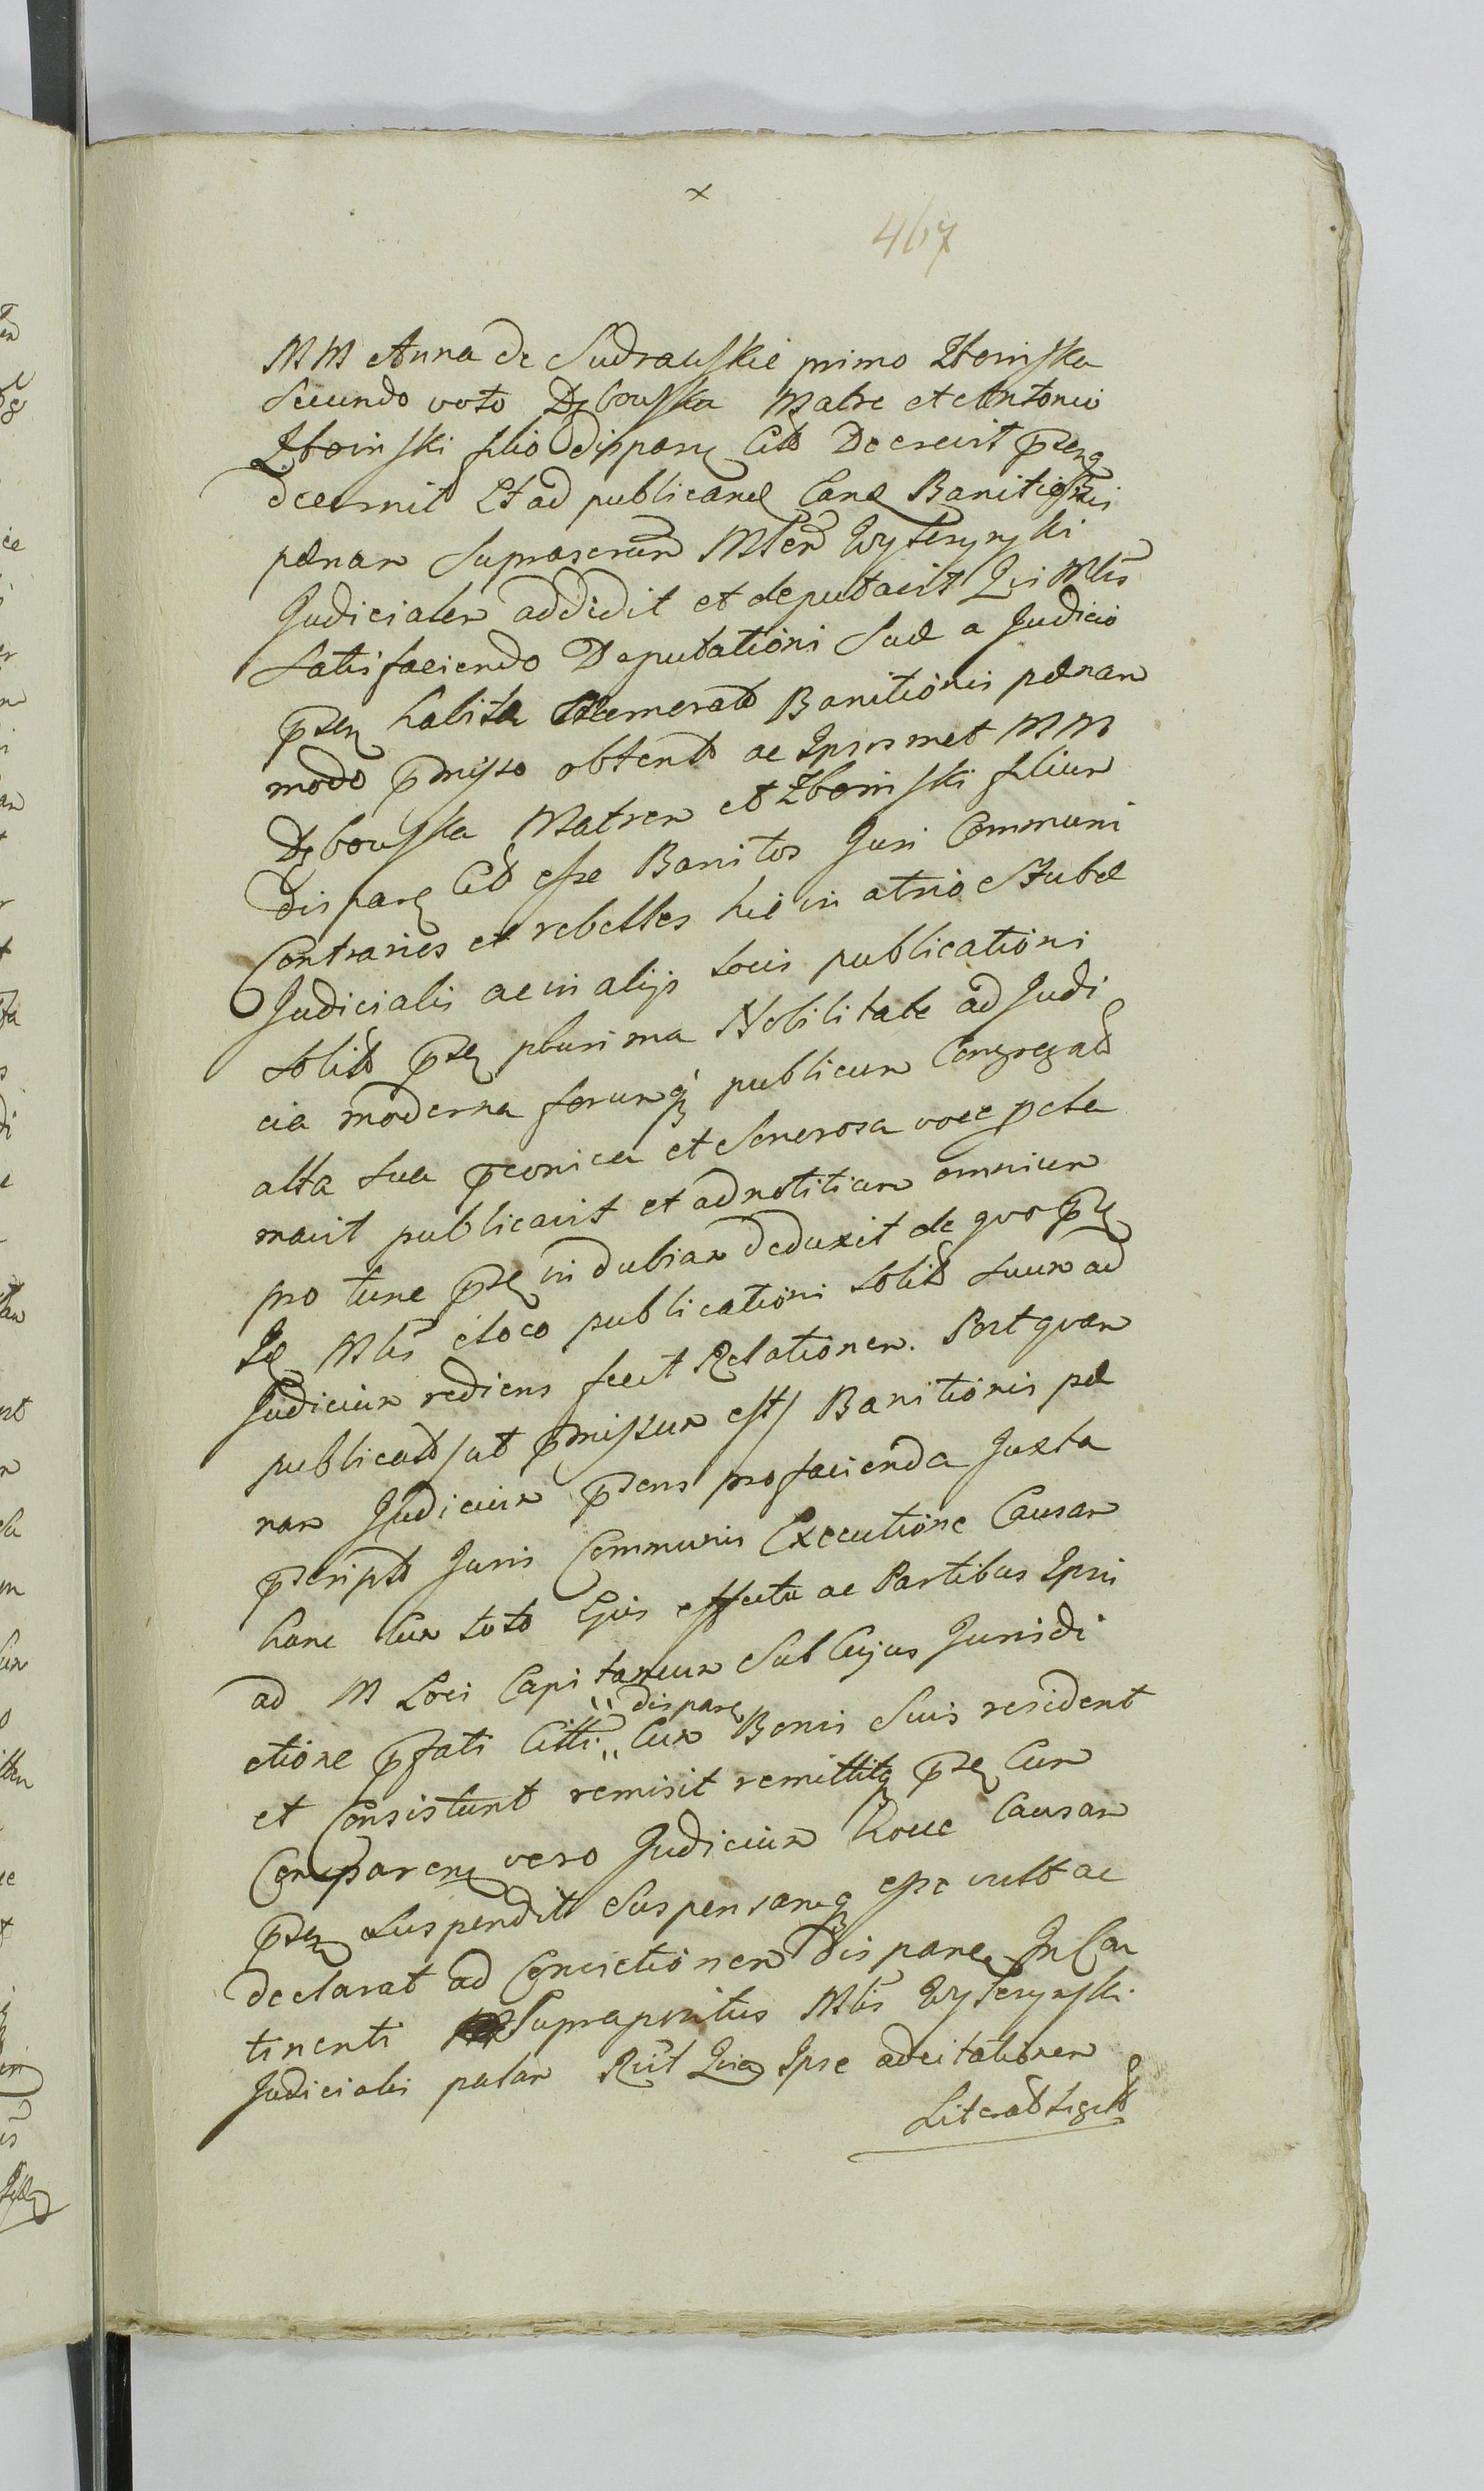 x
467
MM Anna de Sudrauskie primo Zboinska
Secundo voto Dębouska Matre et Antonio
Zboinski filio disparen Citt Decreuit pntq
decernit Et ad publicand Eand Banitionis
pænam suprascrtum Mtem Wyszczynski
Judicialem addidit et deputauit Qui Mtis
Satisfaciendo Deputationi Suæ a Judicio
pnti habitæ memorat Banitionis pænam
modo pmisso obtent ac Ipsosmet MM
Dębouska Matrem et Zboinski filium
dispare Citt esse Banitos Juri Communi
Contrarios et rebelles hic in atrio Stubæ
Judicialis ac in alijs locis publicationi
solit pnti plurima Nobilitate ad Judi
cia moderna forumq publicum Congregat
alta sua pconica et Sonorosa voce pcla
mauit publicauit et ad notitiam omnium
pro tunc pnt indubiam deduxit de quo pnt
Id Mtis e loco publicationi solit suum ad
Judicium rediens fecit Relationem. Postquam
publicat / ut pmissum est / Banitionis pæ
nam Judicium pntens pro facienda Juxta
pscript Juris Communis Executione Causam
hanc Cum toto Ejus effectu ac Partibus Ipsis
ad M Loci Capitaneum Sub Cujus Jurisdi
disparen
ctione pfati Citti Cum Bonis Suis resident
et Consistunt remisit remittitq pnt Cum
Comparen vero Judicium hocce Causam
pnt suspendit Suspensamq esse vult ac
declarat ad Conuictionem disparen In Con
tinenti Suprapositus Mtis Wyszczynski
Judicialis palam Rcit Quia Ipse ad citationem
Literat Legitt